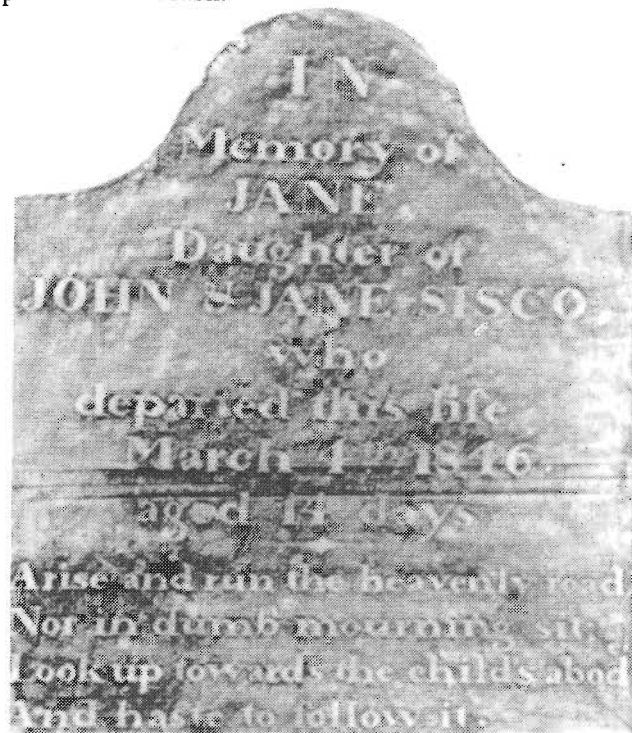 IN
Memory of
JANE
Daughter of
JOHN & JANE SISCO
who
departed this life
March 4th 1846
aged 14 days
Arise and run the heavenly road,
Nor in dumb mourning sit,
Look up towards the child's abod
And haste to follow it.